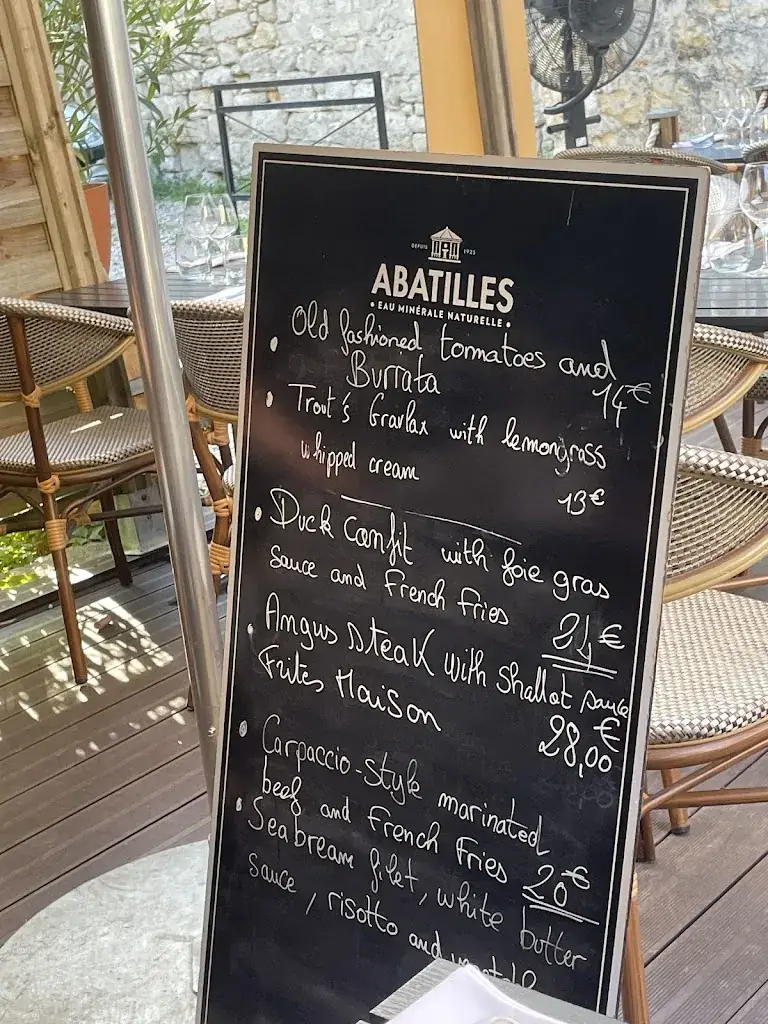 DEPUIS 1925
ABATILLES
• EAU MINÉRALE NATURELLE •
• Old fashioned tomatoes and
Burrata 14€
• Trout's Gravlax with lemongrass
whipped cream 13€
• Duck Confit with foie gras
sauce and French Fries 24€
• Angus steak with Shallot sauce
Frites Maison 28,00€
• Carpaccio-style marinated
beef and French Fries 20€
• Sea bream filet, white butter
sauce, risotto and